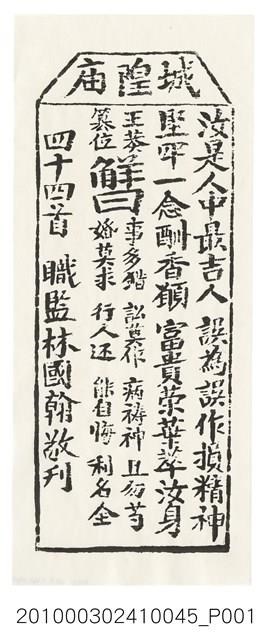 城隍廟
汝是人中最吉人 誤為誤作損精神
堅牢一念酬香願 富貴榮華萃汝身
王莽 事多猶 訟莫作 病禱神 且勿苟
篡位 解曰 婚莫求 行人还 能自悔 利名全
四十四首 職監林國翰敬刊
201000302410045_P001